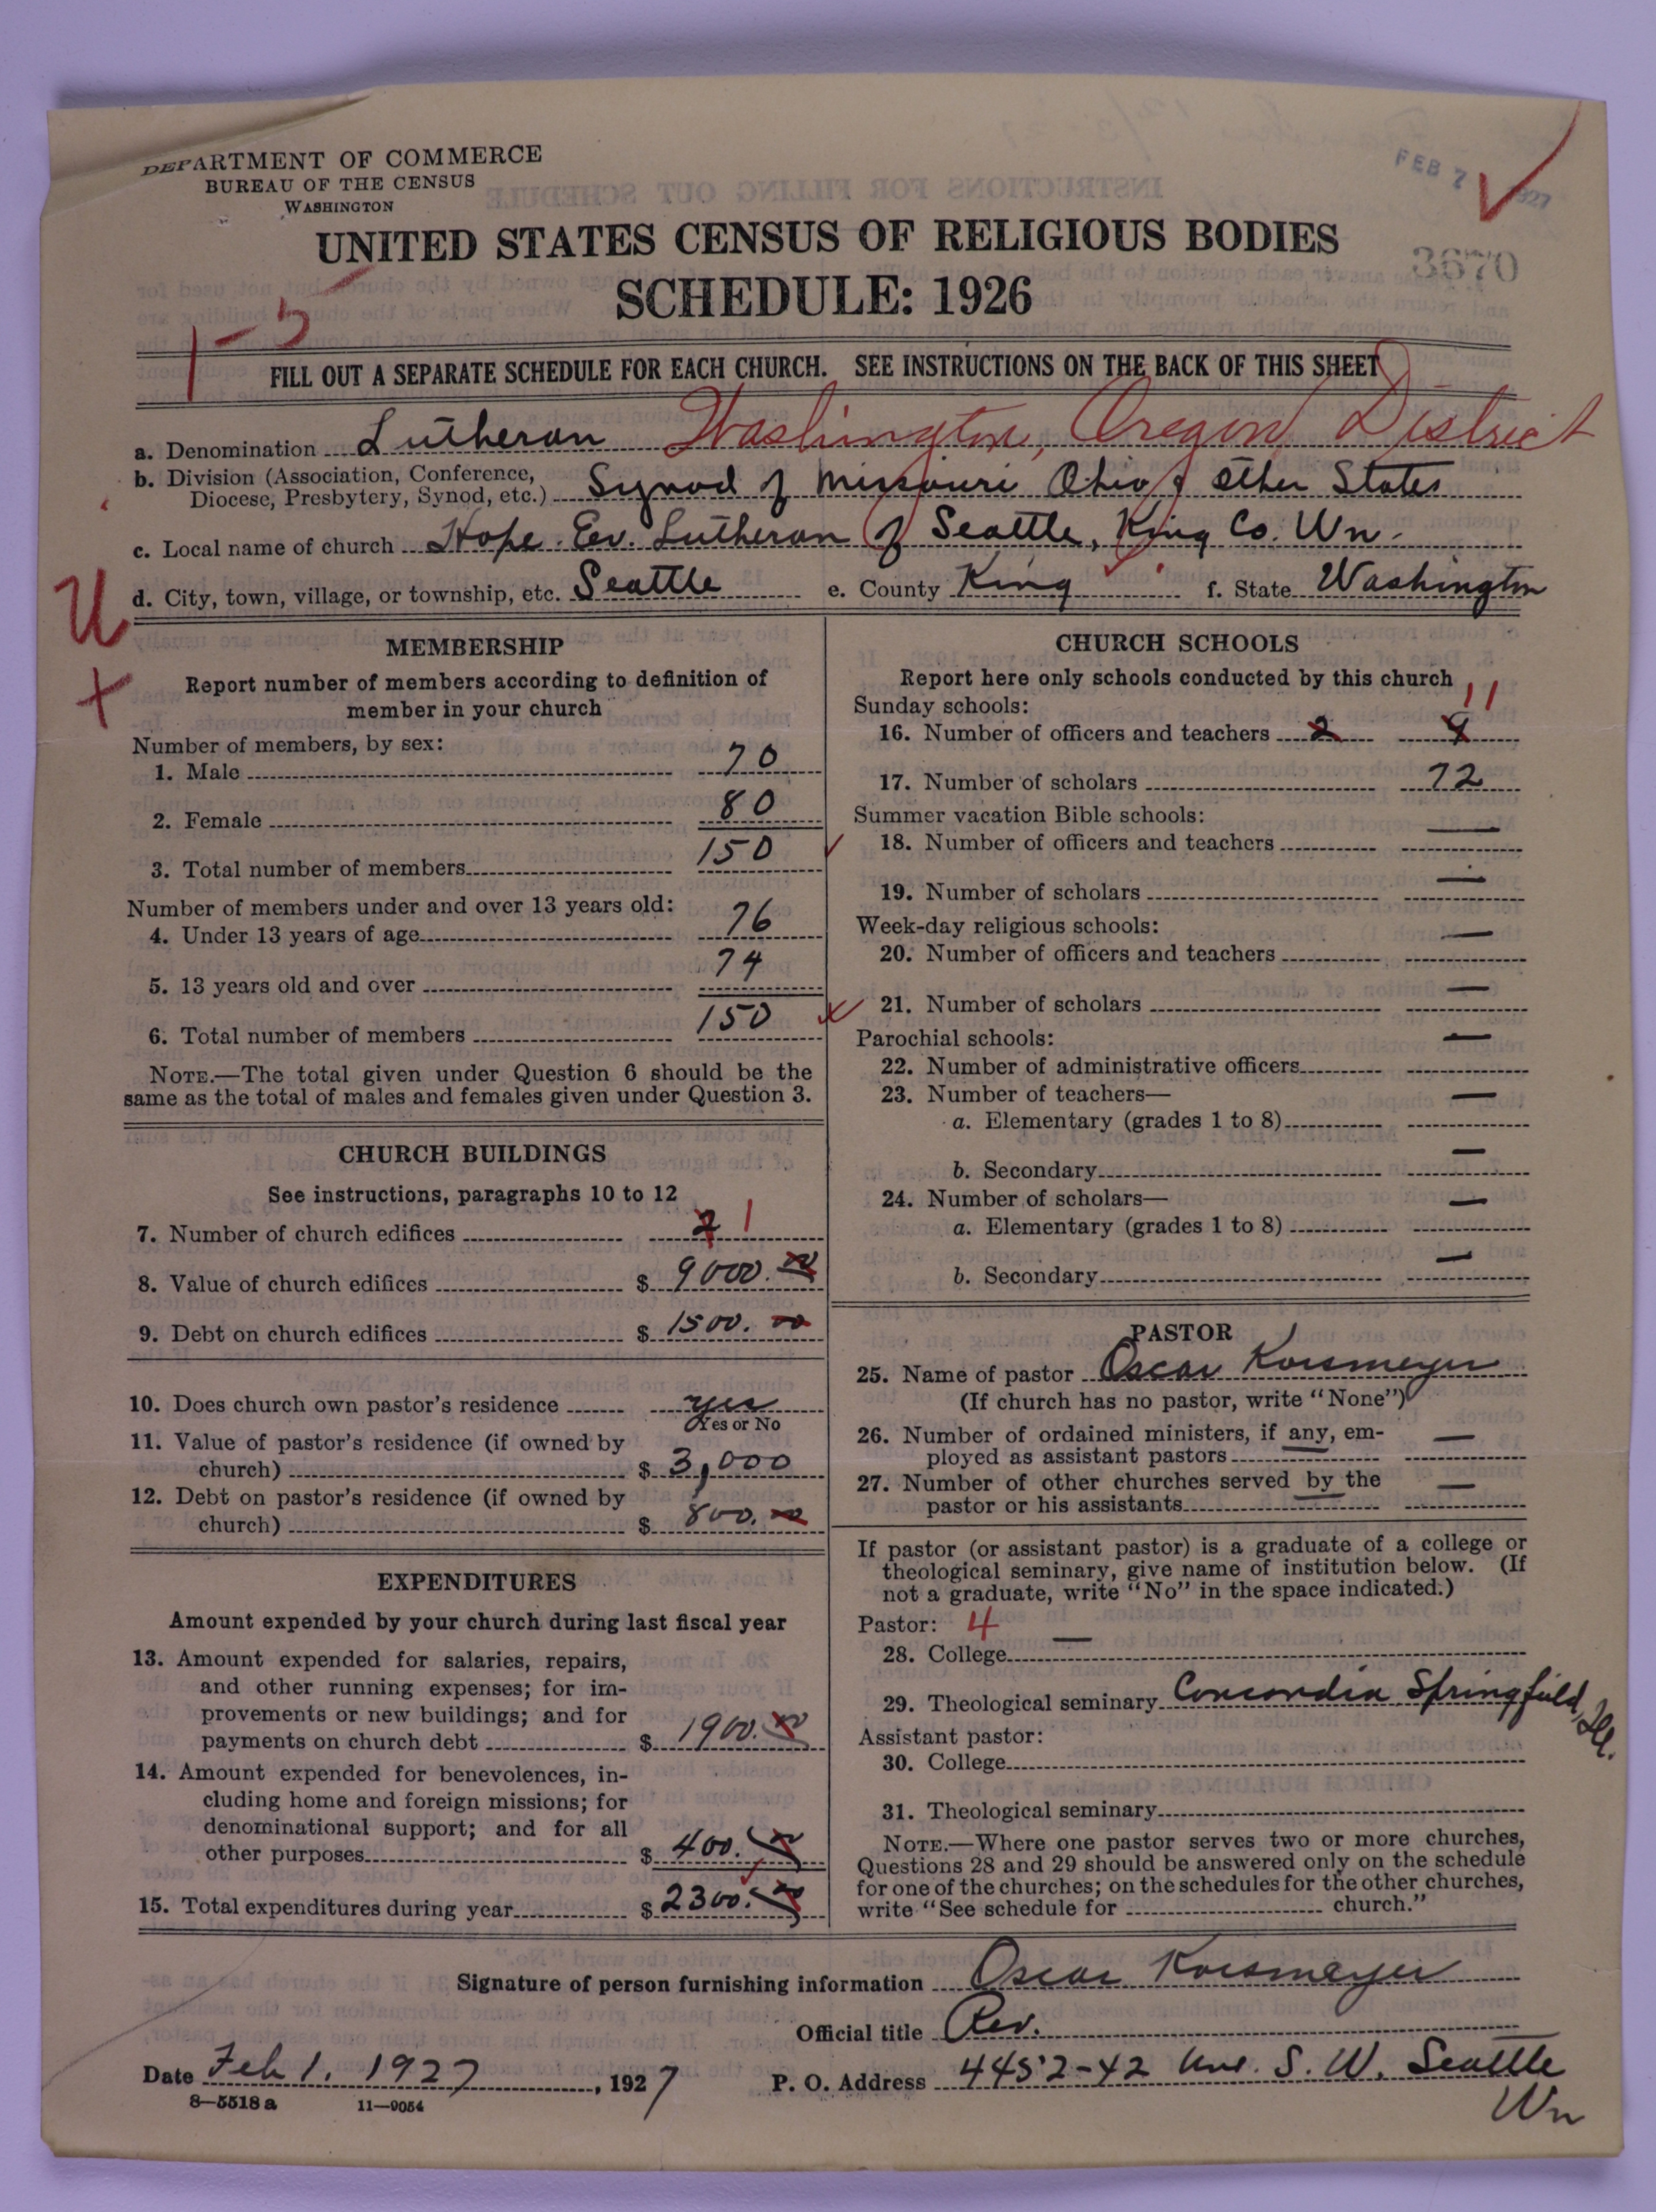 DEPARTMENT OF COMMERCE
BUREAU OF THE CENSUS
WASHINGTON
FEB 7 1927
3670
UNITED STATES CENSUS OF RELIGIOUS BODIES
SCHEDULE: 1926
1-5
FILL OUT A SEPARATE SCHEDULE FOR EACH CHURCH. SEE INSTRUCTIONS ON THE BACK OF THIS SHEET
a. Denomination Lutheran Washington, Oregon District
b. Division (Association, Conference,
Diocese, Presbytery, Synod, etc.) Synod of Missouri Ohio & other States
c. Local name of church Hope Ev. Lutheran of Seattle, King Co. Wn.
d. City, town, village, or township, etc. Seattle e. County King f. State Washington
U
+
MEMBERSHIP
Report number of members according to definition of
member in your church
Number of members, by sex:
1. Male 70
2. Female 80
3. Total number of members 150
Number of members under and over 13 years old:
4. Under 13 years of age 76
5. 13 years old and over 74
6. Total number of members 150
NOTE.—The total given under Question 6 should be the
same as the total of males and females given under Question 3.
CHURCH BUILDINGS
See instructions, paragraphs 10 to 12
7. Number of church edifices 2 1
8. Value of church edifices $ 9000.00
9. Debt on church edifices $ 1500.00
10. Does church own pastor's residence yes
Yes or No
11. Value of pastor's residence (if owned by
church) $ 3,000
12. Debt on pastor's residence (if owned by
church) $ 800.00
EXPENDITURES
Amount expended by your church during last fiscal year
13. Amount expended for salaries, repairs,
and other running expenses; for im-
provements or new buildings; and for
payments on church debt $ 1900.00
14. Amount expended for benevolences, in-
cluding home and foreign missions; for
denominational support; and for all
other purposes $ 400.00
15. Total expenditures during year $ 2300.00
CHURCH SCHOOLS
Report here only schools conducted by this church
Sunday schools:
11
16. Number of officers and teachers 2 9
17. Number of scholars 72
Summer vacation Bible schools:
18. Number of officers and teachers —
19. Number of scholars —
Week-day religious schools:
20. Number of officers and teachers —
21. Number of scholars —
Parochial schools:
22. Number of administrative officers —
23. Number of teachers—
a. Elementary (grades 1 to 8) —
b. Secondary —
24. Number of scholars—
a. Elementary (grades 1 to 8) —
b. Secondary —
PASTOR
25. Name of pastor Oscar Korsmeyer
(If church has no pastor, write "None")
26. Number of ordained ministers, if any, em-
ployed as assistant pastors —
27. Number of other churches served by the
pastor or his assistants —
If pastor (or assistant pastor) is a graduate of a college or
theological seminary, give name of institution below. (If
not a graduate, write "No" in the space indicated.)
Pastor: 4
28. College —
29. Theological seminary Concordia Springfield, Ill.
Assistant pastor:
30. College
31. Theological seminary
NOTE.—Where one pastor serves two or more churches,
Questions 28 and 29 should be answered only on the schedule
for one of the churches; on the schedules for the other churches,
write "See schedule for church."
Signature of person furnishing information Oscar Korsmeyer
Official title Rev.
Date Feb 1. 1927, 1927 P. O. Address 4452-42 Ave. S. W. Seattle
Wn
8—5518 a 11—9054